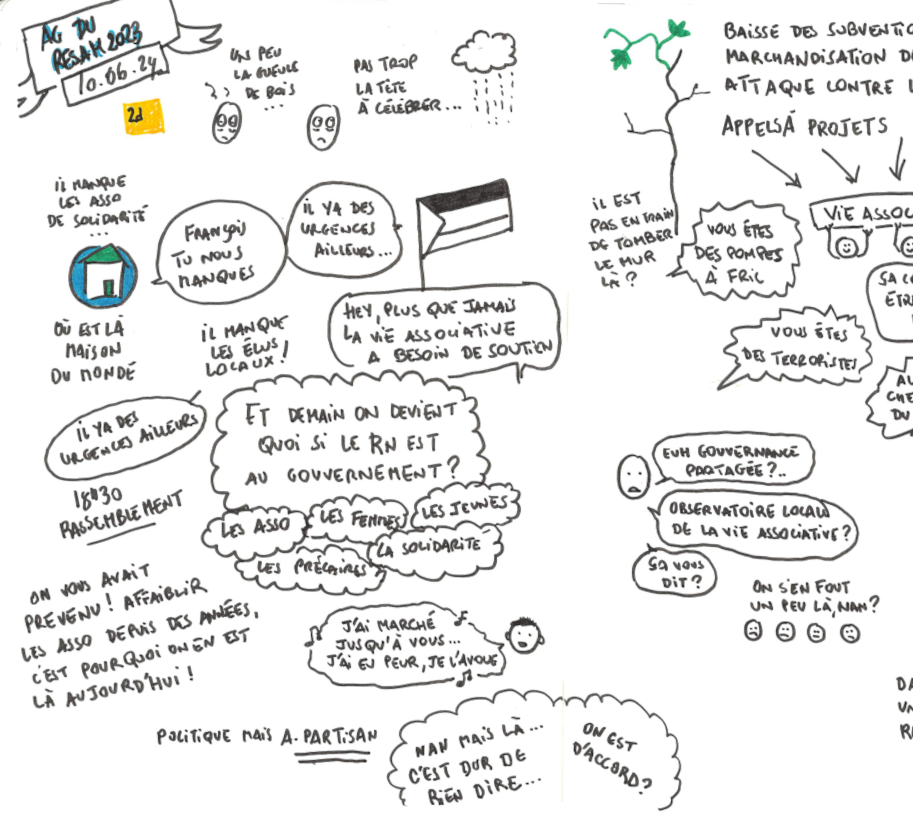 AG DU
RESAM 2023
10.06.24
2d
UN PEU
LA GUEULE
DE BOIS
...
PAS TROP
LA TÊTE
À CÉLÉBRER...
IL MANQUE
LES ASSO
DE SOLIDARITÉ
...
FRANÇOIS
TU NOUS
MANQUES
IL YA DES
URGENCES
AILLEURS...
OÙ EST LA
MAISON
DU MONDÉ
IL MANQUE
LES ÉLUS
LOCAUX!
HEY, PLUS QUE JAMAIS
LA VIE ASSOCIATIVE
A BESOIN DE SOUTIEN
IL YA DES
URGENCES AILLEURS
18H30
RASSEMBLEMENT
ET DEMAIN ON DEVIENT
QUOI SI LE RN EST
AU GOUVERNEMENT?
LES ASSO
LES FEMMES
LES JEUNES
LES PRÉCAIRES
LA SOLIDARITÉ
ON VOUS AVAIT
PREVENU! AFFAIBLIR
LES ASSO DEPUIS DES ANNÉES,
C'EST POURQUOI ON EN EST
LÀ AUJOURD'HUI!
J'AI MARCHÉ
JUSQU'À VOUS...
J'AI EU PEUR, JE L'AVOUE
POLITIQUE MAIS A-PARTISAN
NAN MAIS LÀ...
C'EST DUR DE
RIEN DIRE...
ON EST
D'ACCORD?
BAISSE DES SUBVENTIO
MARCHANDISATION D
ATTAQUE CONTRE L
APPELS À PROJETS
IL EST
PAS EN TRAIN
DE TOMBER
LE MUR
LÀ?
VOUS ÊTES
DES POMPES
À FRIC
VIE ASSOC
ÇA C
ÊTR
VOUS ÊTES
DES TERRORISTES
AU
CHE
DU
EUH GOUVERNANCE
PARTAGÉE?..
OBSERVATOIRE LOCALE
DE LA VIE ASSOCIATIVE?
ÇA VOUS
DIT?
ON S'EN FOUT
UN PEU LÀ, NAN?
DA
UN
R